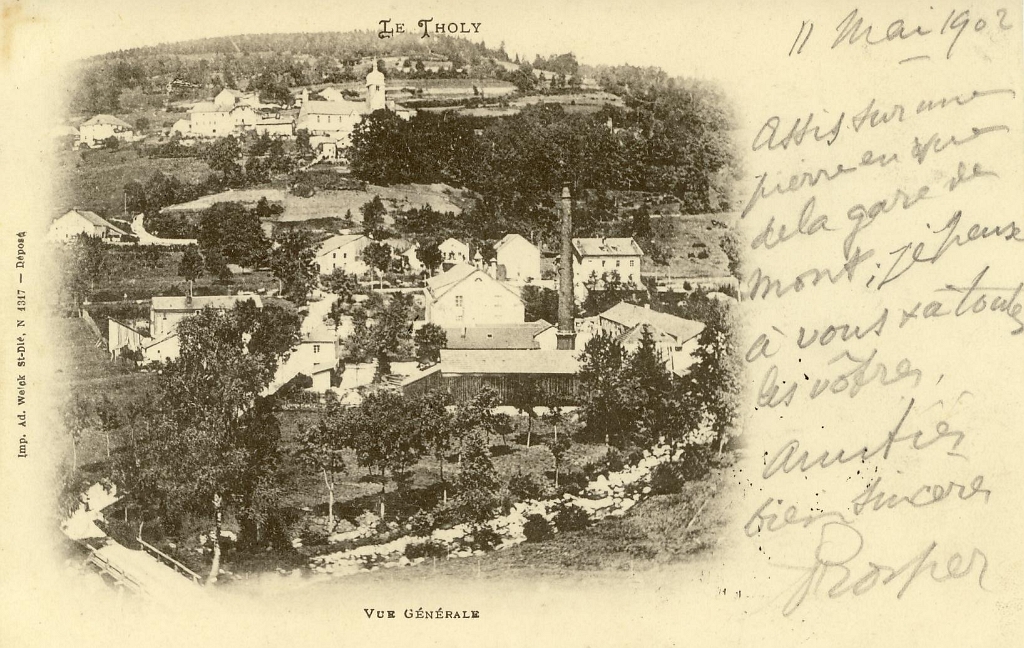 LE THOLY
11 Mai 1902
Assis sur une
pierre en vue
de la gare de
mont, je peux
à vous & a toutes
les vôtres,
Amitiés
bien sincères
Prosper
Imp. Ad. Weick St-Dié, N 1317 — Déposé
VUE GÉNÉRALE